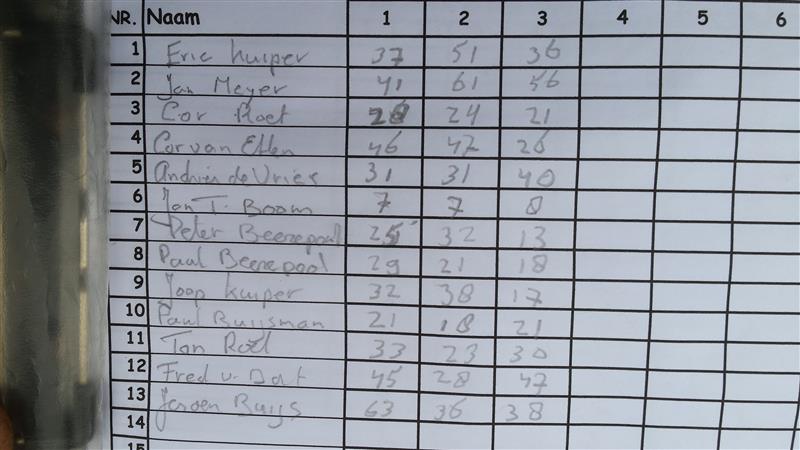 NR. Naam 1 2 3 4 5 6
1 Eric Kuiper 37 51 36
2 Jan Meyer 41 61 56
3 Cor Ploet 26 24 21
4 Cor van Etten 46 47 26
5 Andries de Vries 31 31 40
6 Jan T. Boom 7 7 8
7 Peter Beenepool 25 32 13
8 Paul Beenepool 29 21 18
9 Joop Kuiper 32 38 17
10 Paul Buijsman 21 18 21
11 Ton 33 23 30
12 Fred v. Dat 45 28 47
13 Jeroen Buijs 63 36 38
14
15